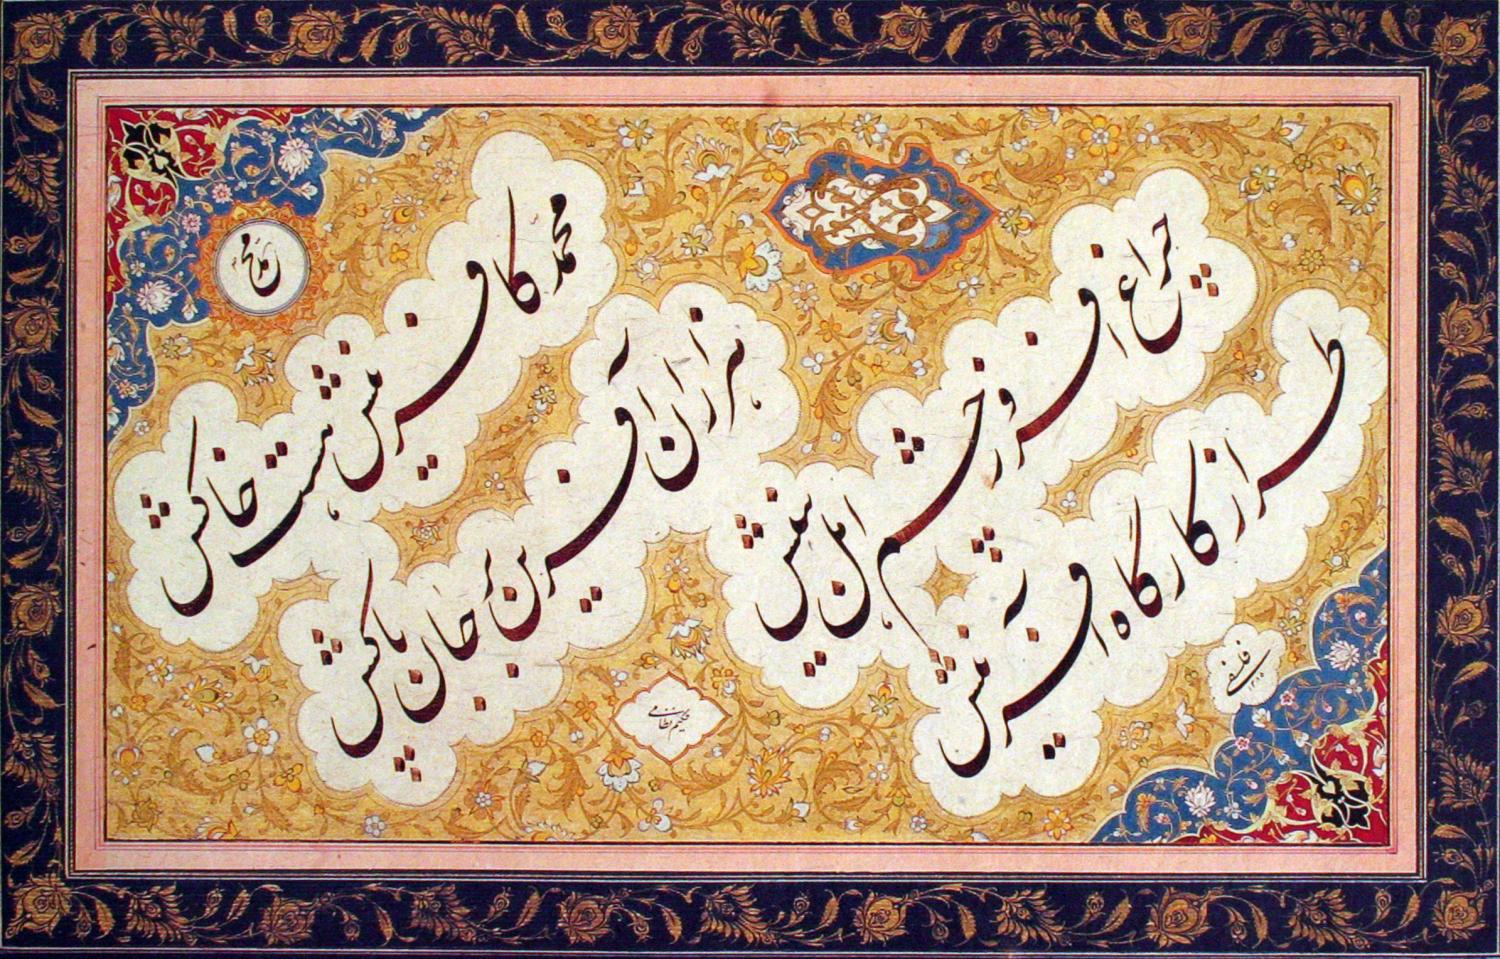 محمد کافرینش هست خاکش
هزاران آفرین بر جان پاکش
چراغ افروز چشم اهل بینش
طراز کارگاه آفرینش
حکیم نظامی
فلسفی